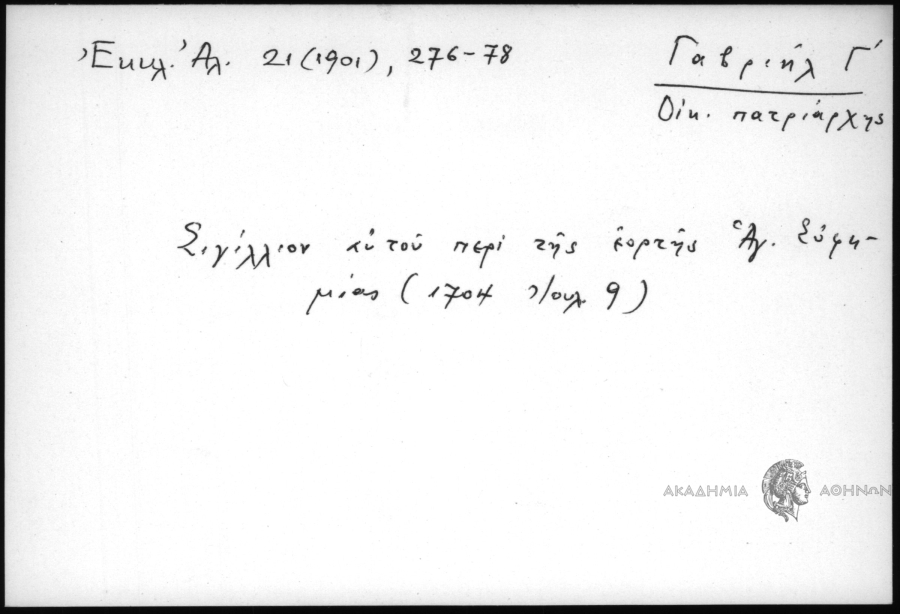 Ἐκκλ. Ἀλ. 21 (1901), 276-78
Γαβριὴλ Γ΄
Οἰκ. πατριάρχης
Σιγίλλιον αὐτοῦ περὶ τῆς ἑορτῆς Ἁγ. Εὐφη-
μίας (1704 Ἰουλ. 9)
ΑΚΑΔΗΜΙΑ ΑΘΗΝΩΝ